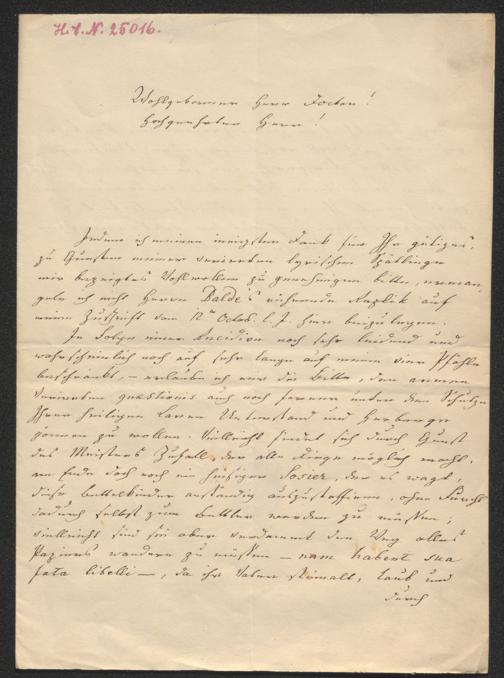 H.I.N. 25016.
Wohlgeborener Herr Doctor!
Hochgeehrter Herr!
Indem ich meinen innigsten Dank für Ihr gütiges,
zu Gunsten meiner verirrten lyrischen Zöglinge
mir bezeigtes Wohlwollen zu genehmigen bitte,
geln ich nicht Herrn Baldi's rührende Replik auf
meine Zuschrift vom 12ten Octob. l. J. hier beizulegen.
In Folge einer Recidive noch sehr leidend und
wahrscheinlich noch auf sehr lange auf meine vier Pfähle
beschränkt, – erlaube ich mir die Bitte, den armen
verirrten quaestionis auch noch fernere unter dem Schutze
Ihrer heiligen Laren Unterstand und Herberge
gönnen zu wollen. Vielleicht findet sich durch Gunst
des Meisters Zufall, der alle Dinge möglich macht,
am Ende doch noch ein hiesiger Sosier, der es wagt,
diese Bettelkinder anständig auszustaffieren, ohne Furcht
dadurch selbst zum Bettler werden zu müssen;
vielleicht sind sie aber verdammt den Weg alles
Papieres wandern zu müssen – nam habent sua
fata libelli –, da ihr Vater steinalt, taub und
durch